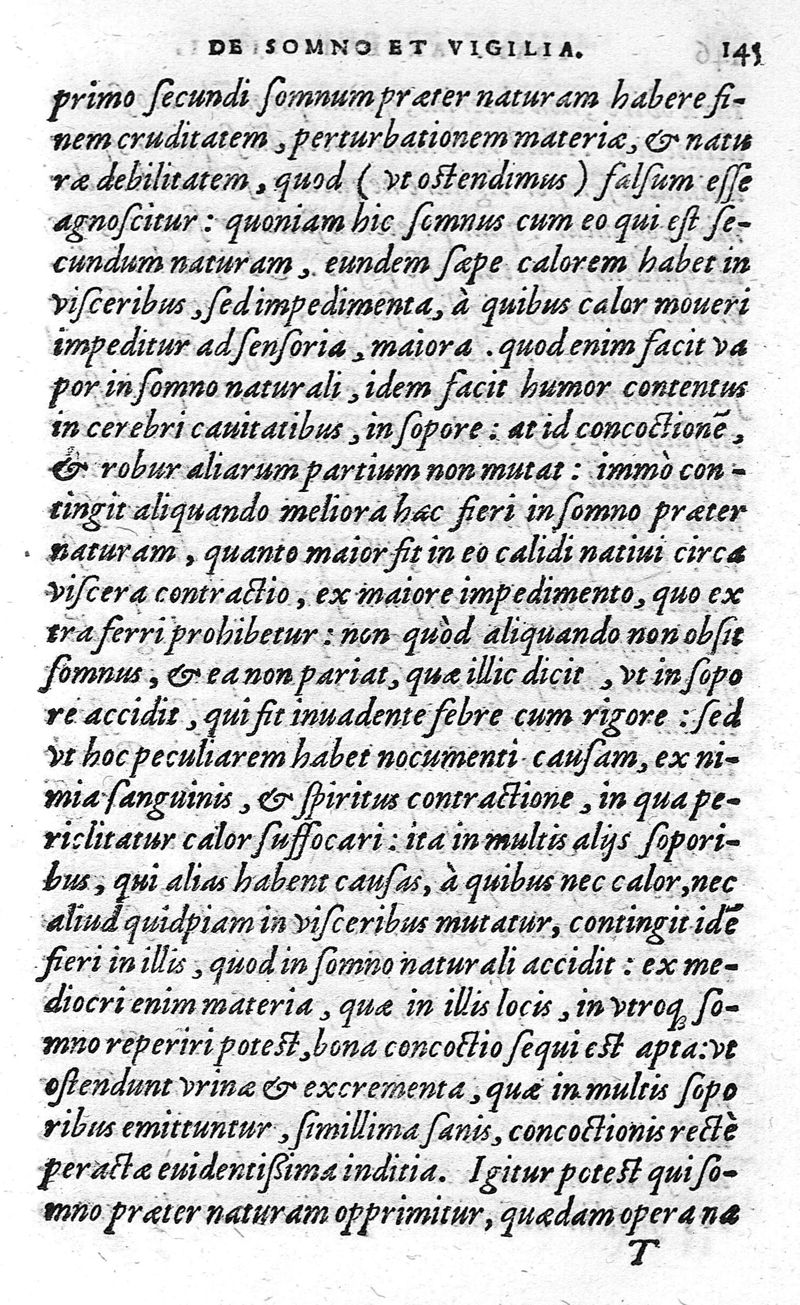 DE SOMNO ET VIGILIA. 145
primo secundi somnum præter naturam habere fi-
nem cruditatem, perturbationem materiæ, & natu
ræ debilitatem, quod ( vt ostendimus ) falsum esse
agnoscitur: quoniam hic somnus cum eo qui est se-
cundum naturam, eundem sæpe calorem habet in
visceribus, sed impedimenta, à quibus calor moueri
impeditur ad sensoria, maiora . quod enim facit va
por in somno naturali, idem facit humor contentus
in cerebri cauitatibus, in sopore: at id concoctionē,
& robur aliarum partium non mutat: immò con-
tingit aliquando meliora hæc fieri in somno præter
naturam, quanto maior fit in eo calidi natiui circa
viscera contractio, ex maiore impedimento, quo ex
tra ferri prohibetur: non quòd aliquando non obsit
somnus, & ea non pariat, quæ illic dicit , vt in sopo
re accidit, qui fit inuadente febre cum rigore : sed
vt hoc peculiarem habet nocumenti causam, ex ni-
mia sanguinis, & spiritus contractione, in qua pe-
riclitatur calor suffocari: ita in multis alijs sopori-
bus, qui alias habent causas, à quibus nec calor, nec
aliud quidpiam in visceribus mutatur, contingit idē
fieri in illis, quod in somno naturali accidit: ex me-
diocri enim materia, quæ in illis locis, in vtroq; so-
mno reperiri potest, bona concoctio sequi est apta: vt
ostendunt vrinæ & excrementa, quæ in multis sopo
ribus emittuntur, simillima sanis, concoctionis rectè
peractæ euidentissima inditia. Igitur potest qui so-
mno præter naturam opprimitur, quædam opera na
T